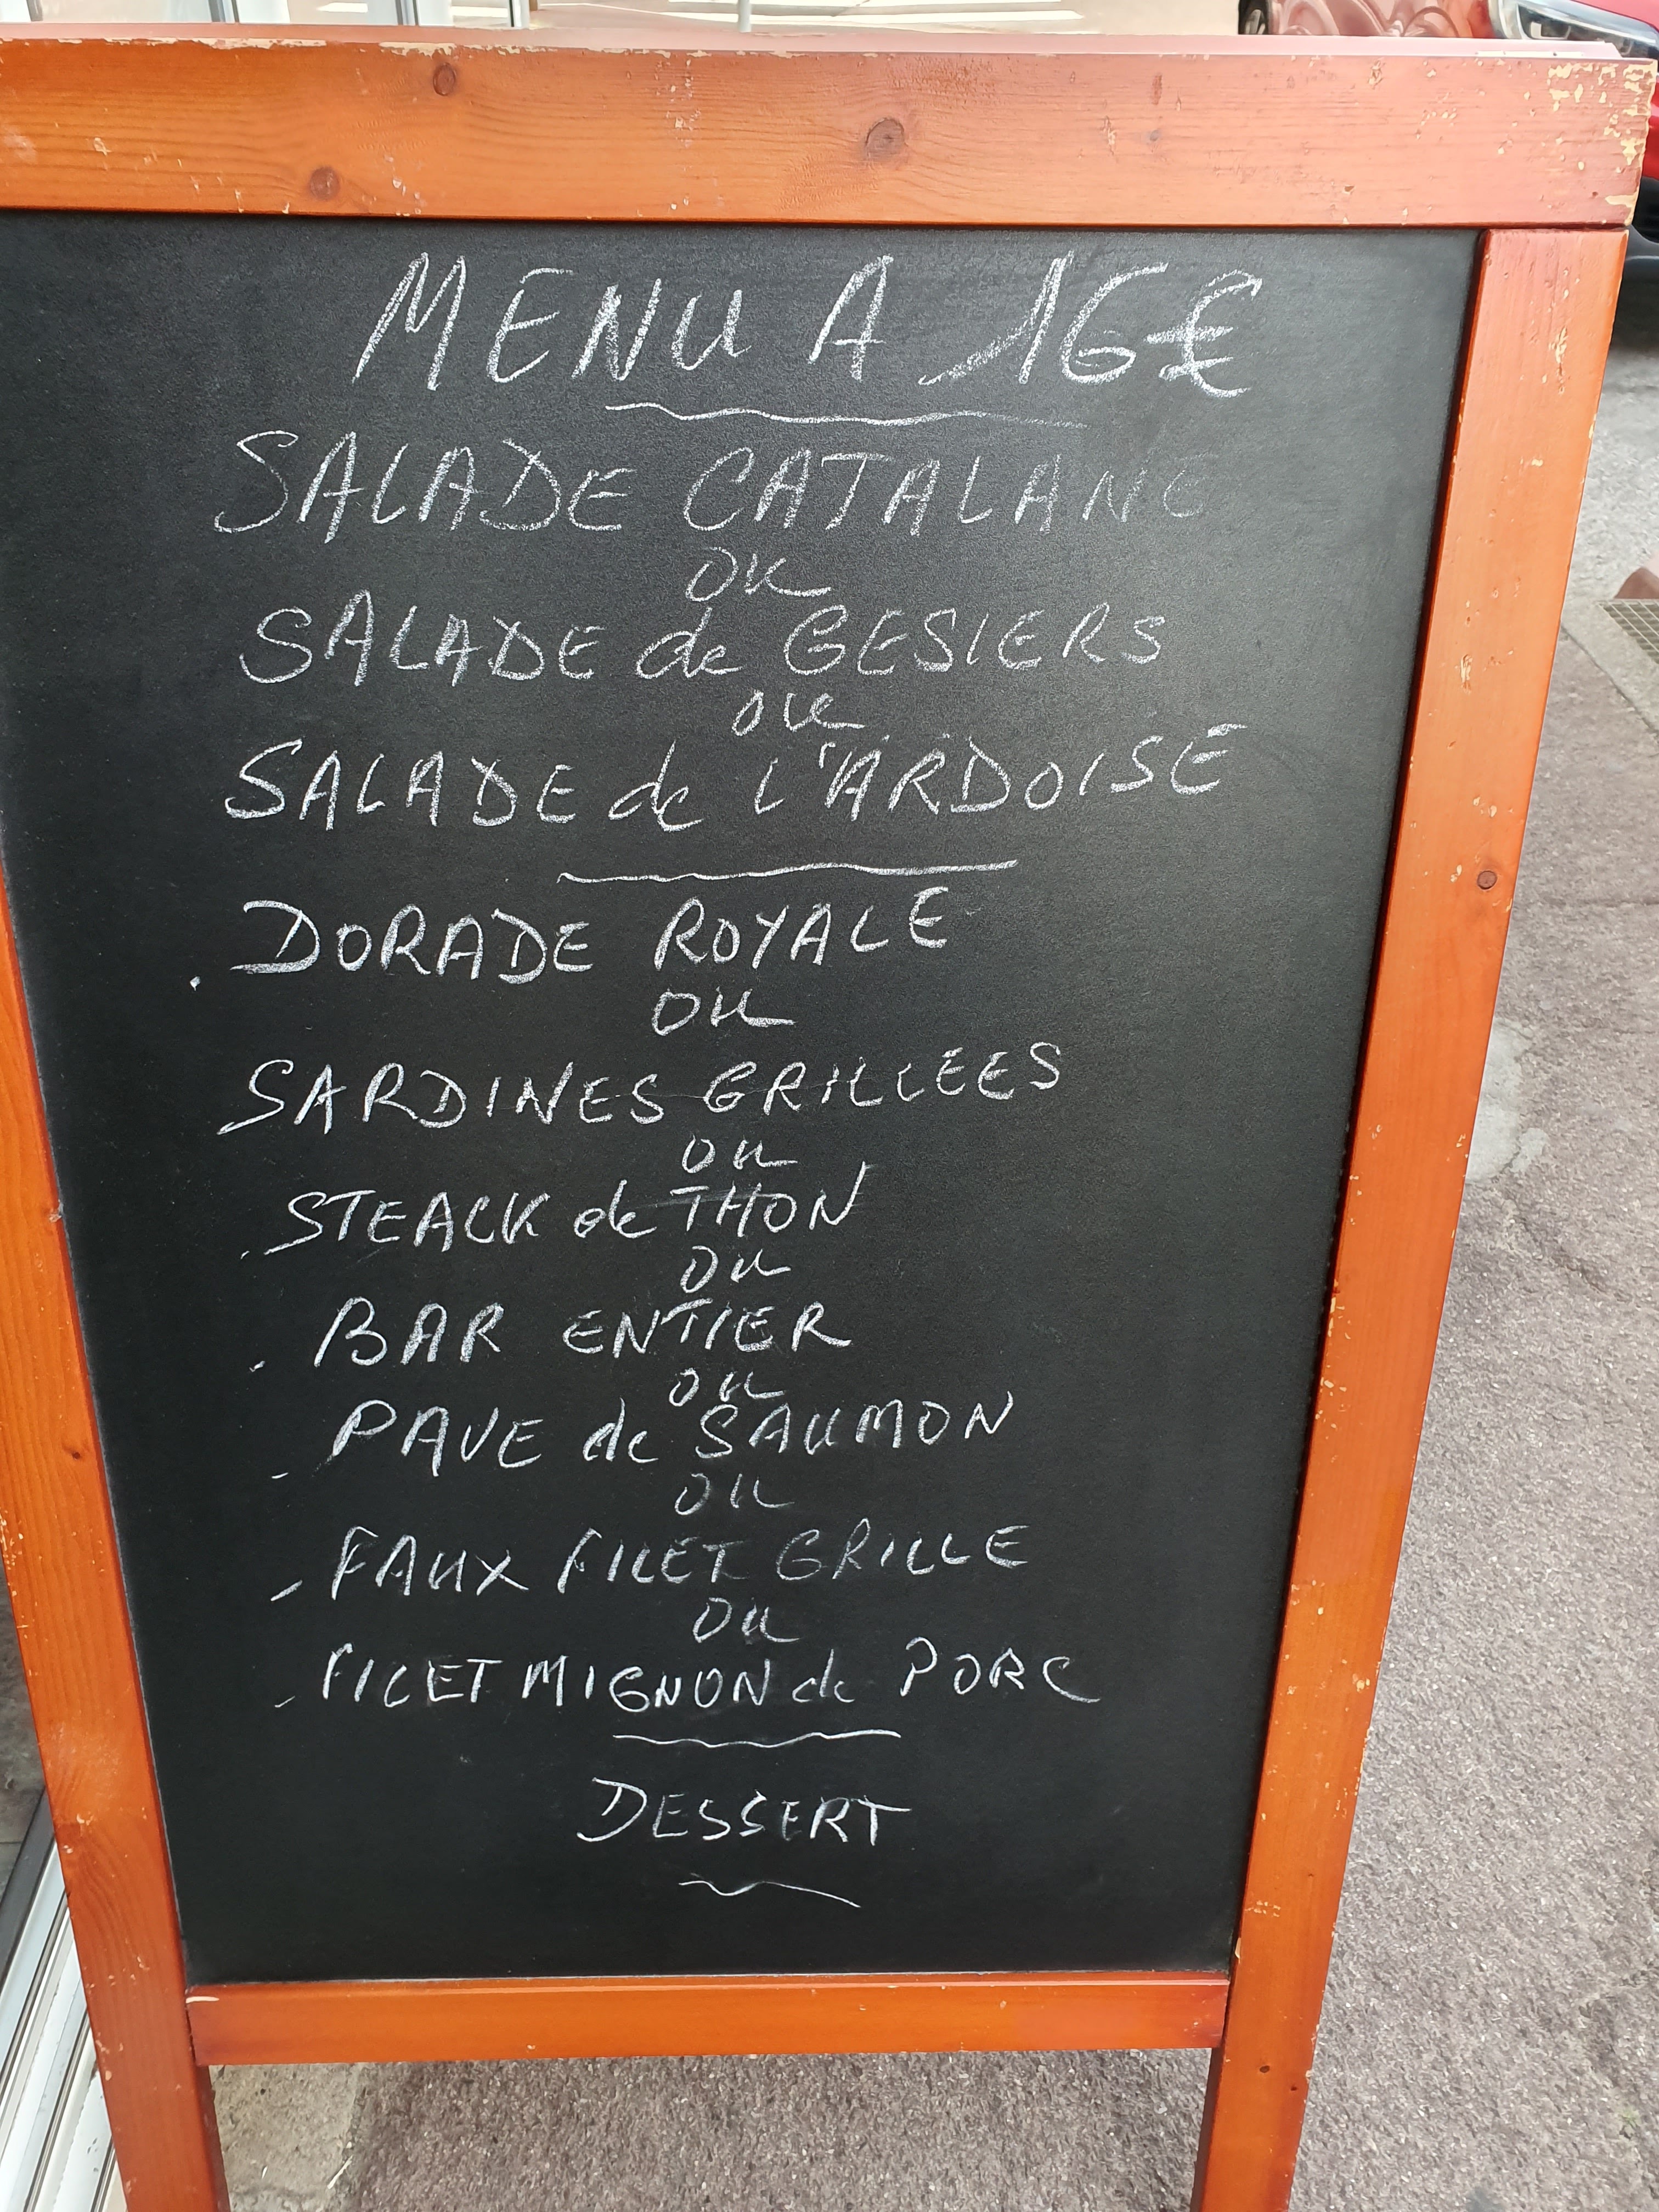 MENU A 16€
SALADE CATALANE
ou
SALADE de GESIERS
ou
SALADE de L'ARDOISE
DORADE ROYALE
ou
SARDINES GRILLEES
ou
STEACK de THON
ou
BAR ENTIER
ou
PAVE de SAUMON
ou
FAUX FILET GRILLE
ou
FILET MIGNON de PORC
DESSERT